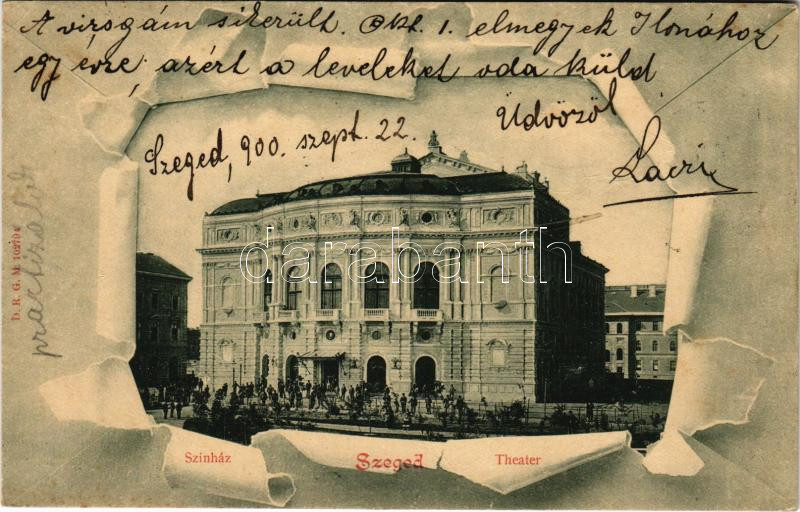 A virsgám sikerült. Okt. 1. elmegyek Ilonához
egy évre azért a leveleket oda küld
Üdvözöl
Szeged, 900. szept. 22.
Laczi
darabanth
D. R. G. M. 102794
Szinház
Szeged
Theater